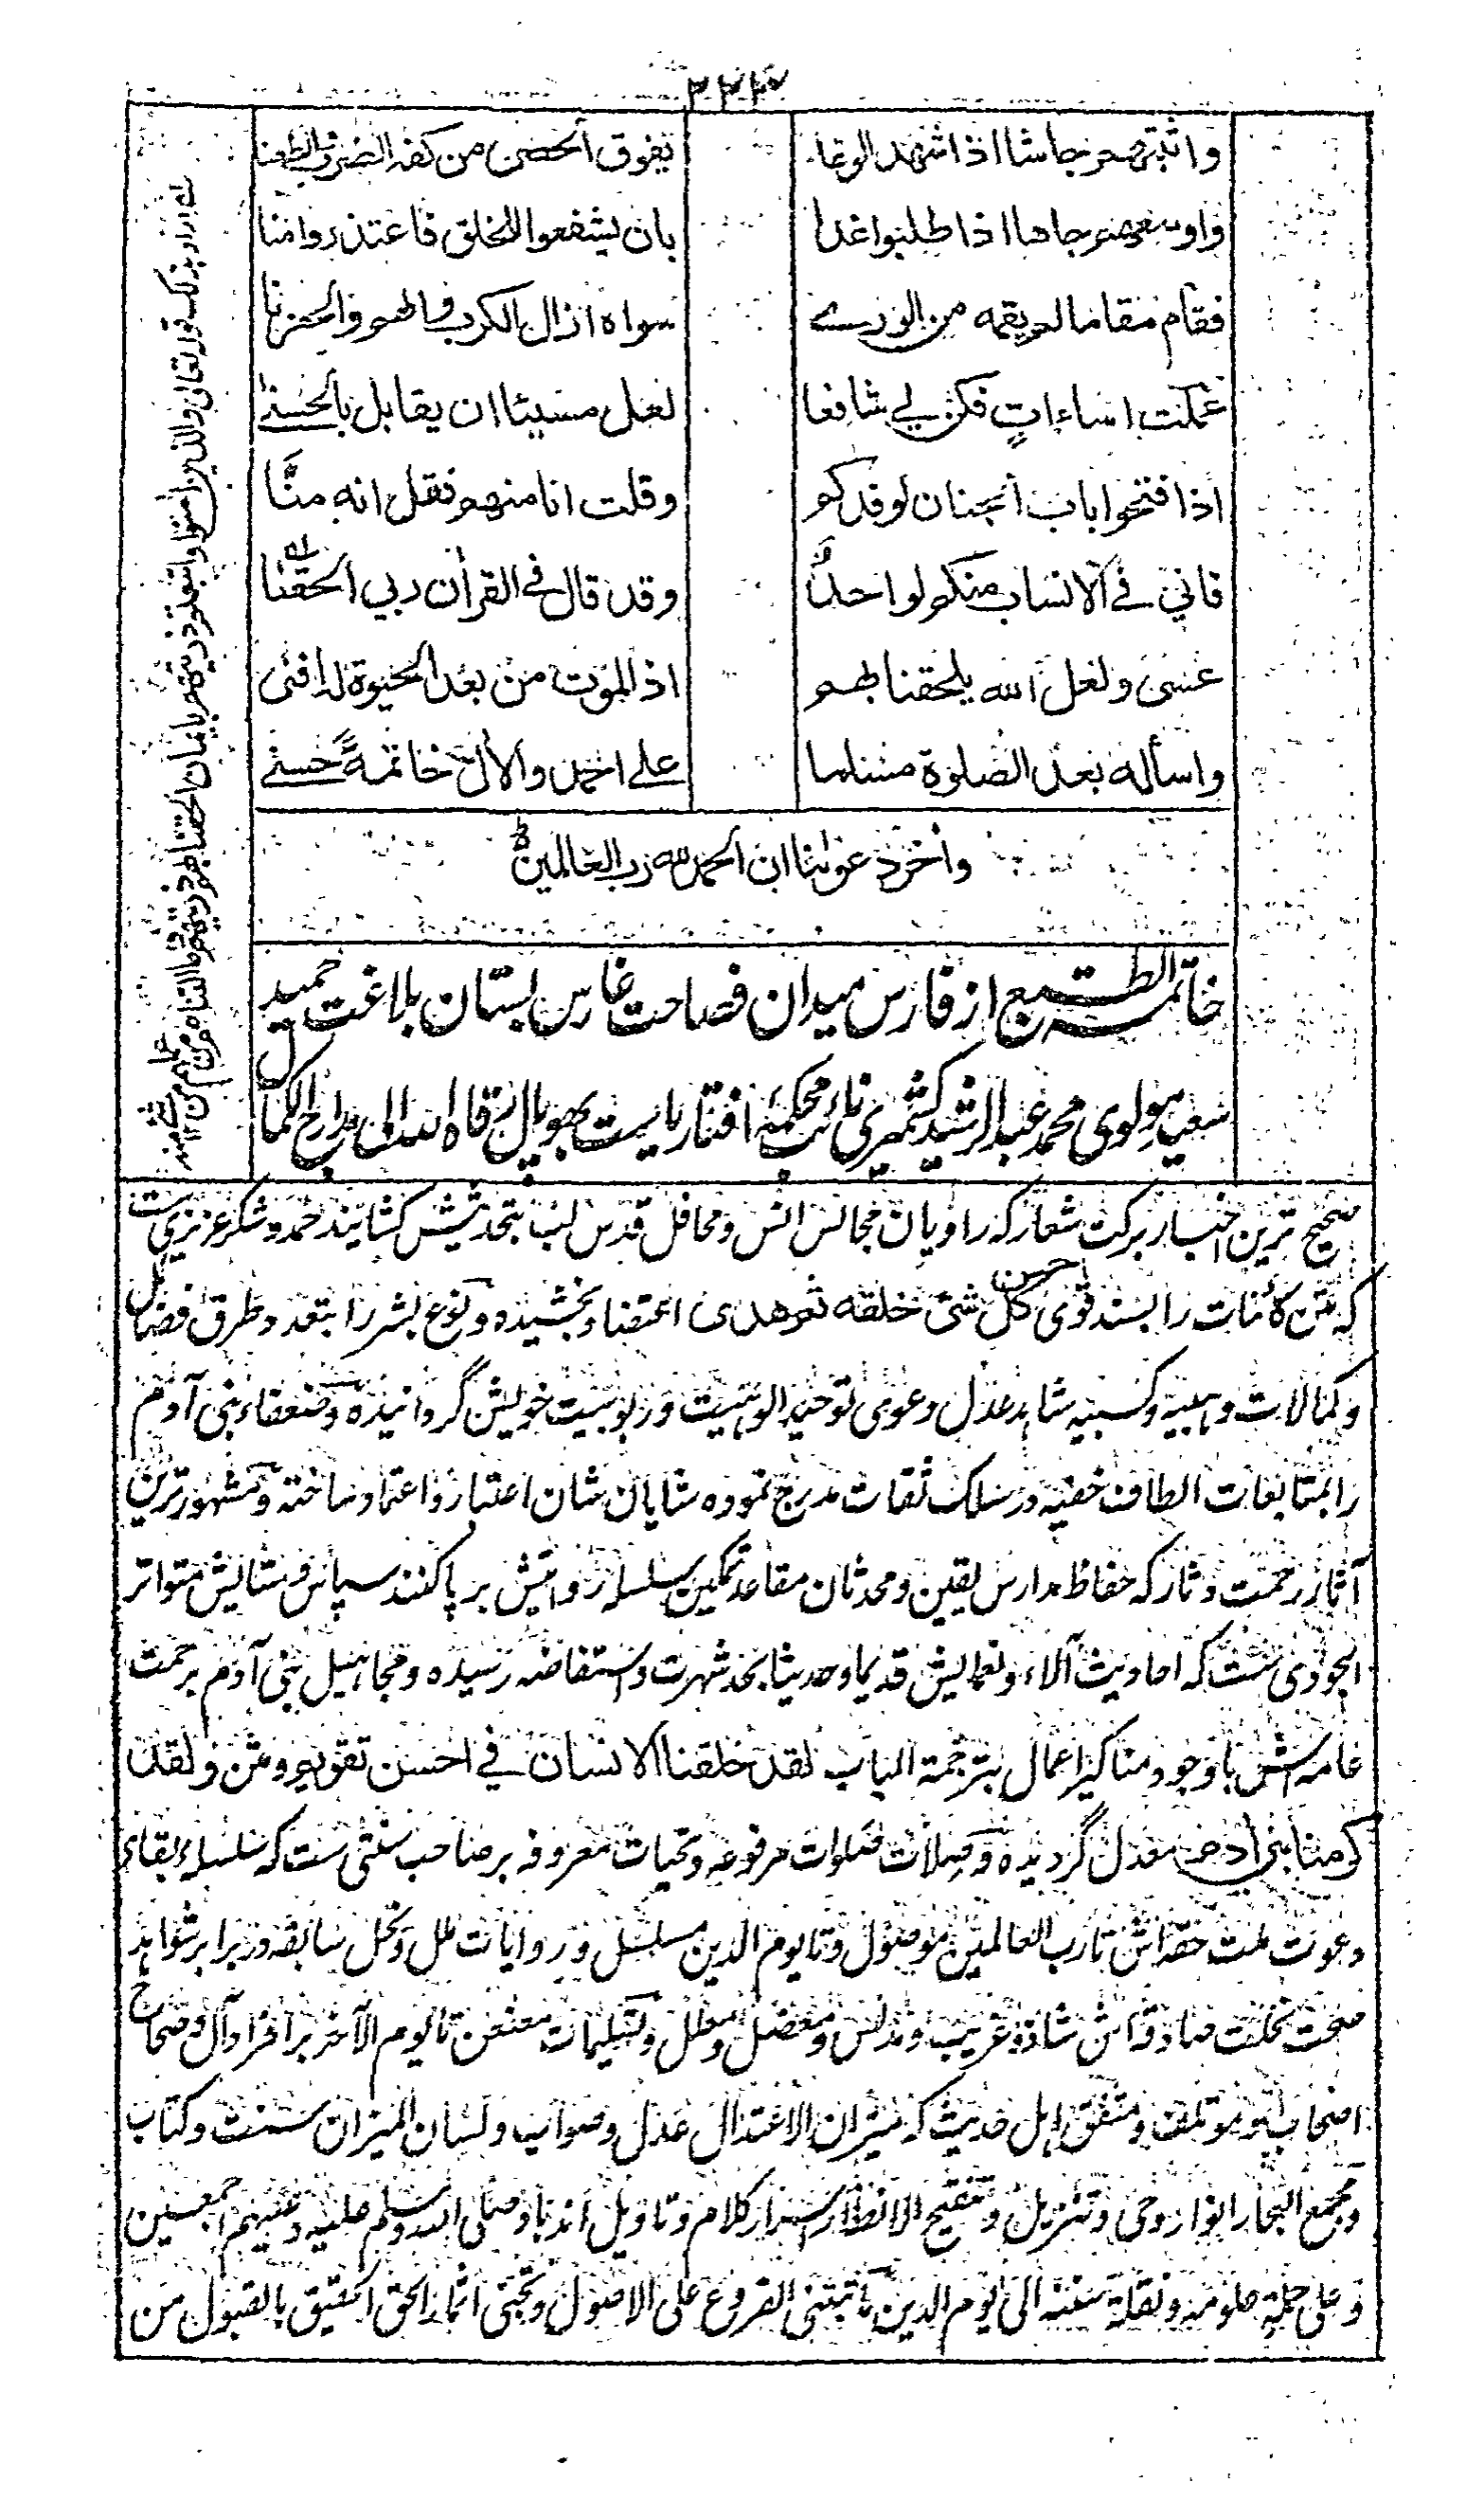 ۲۲۴
واثبتهم جاشا اذا شهد الوغا يفوق الحصن من كفه الضرب والطعنا
واوسعهم جاها اذا طلبوا غدا بان يشفعوا للخلق فاعتذروا منا
فقام مقاما لم يقمه من الورے سواه ازال الكرب والهم والحزنا
عملت اساءاتٍ فكن لي شافعا لعل مسيئا ان يقابل بالحسنے
اذا فتحوا باب الجنان لوفدكم وقلت انا منهم فقل انه منَّا
فاني في الانساب منكم لواحدٌ وقد قال في القرآن ربي الحقنا
عسى ولعل الله يلحقنا بهم اذ الموت من بعد الحيوة لدافنى
واسأله بعد الصلوة مسلما على احمد والآل خاتمةً حسنے
وآخر دعوٰنا ان الحمد لله رب العالمين
خاتمة الطبع از فارس میدان فصاحت غارس بستان بلاغت حمید
سعید مولوی محمد عبد الرشید کشمیری نائب محکمۂ افتا ریاست بھوپال رقاه الله الی مدارج الکمال
صحیح ترین اخبار برکت شعار که راویان مجالس انس و محافل قدس لب بتحدیثش کشایند حمد و شکر عزیزی ست
که متن کائنات را بسند قوی احسن كل شئ خلقه ثم هدى اعتضاد بخشیده و نوع بشر را بتعدد طرق فضائل
و کمالات وهبیه و کسبیه شاهد عدل دعوی توحید الوهیت و ربوبیت خویش گردانیده و ضعفاء بنی آدم
را بمتابعات الطاف خفیه در سلک ثقات مدرج نموده شایان شان اعتبار و اعتماد ساخته و مشهور ترین
آثار رحمت دثار که حفاظ مدارس یقین و محدثان مقاعد تمکین سلسله روایتش بر پا کنند سپاس و ستایش متواتر
الجودی ست که احادیث آلاء و نعمایش قدیما و حدیثا بحد شهرت و استفاضه رسیده و مجاهیل بنی آدم برحمت
عامه اش با وجود مناکیر اعمال بترجمة الباب لقد خلقنا الانسان في احسن تقويم و متن ولقد
كرمنا بني آدم معدل گردیده و صلات صلوات مرفوعه و تحیات معروفه بر صاحب سنتی ست که سلسله بقاء
دعوت ملت حقه اش تا رب العالمین موصول و تا یوم الدین مسلسل و روایات ملل و نحل سابقه در برابر شواهد
صحت نحلت صادقه اش شاذ و غریب و مدلس و معضل و معلل و تسلیمات معنعن تا یوم الآخر بر افراد آل و صحاح
اصحاب او مؤتلف و متفق اهل حدیث که میزان الاعتدال عدل و صواب و لسان المیزان سنت و کتاب
و مجمع البحار انوار وحی و تنزیل و تنقیح الانظار اسرار کلام و تاویل اند باد صلی الله و سلم علیه و علیهم اجمعین
و علی حملة علومه و نقلة سننه الی یوم الدین ما تبتنی الفروع علی الاصول و تجتنی اثمار الحق الحقیق بالقبول من